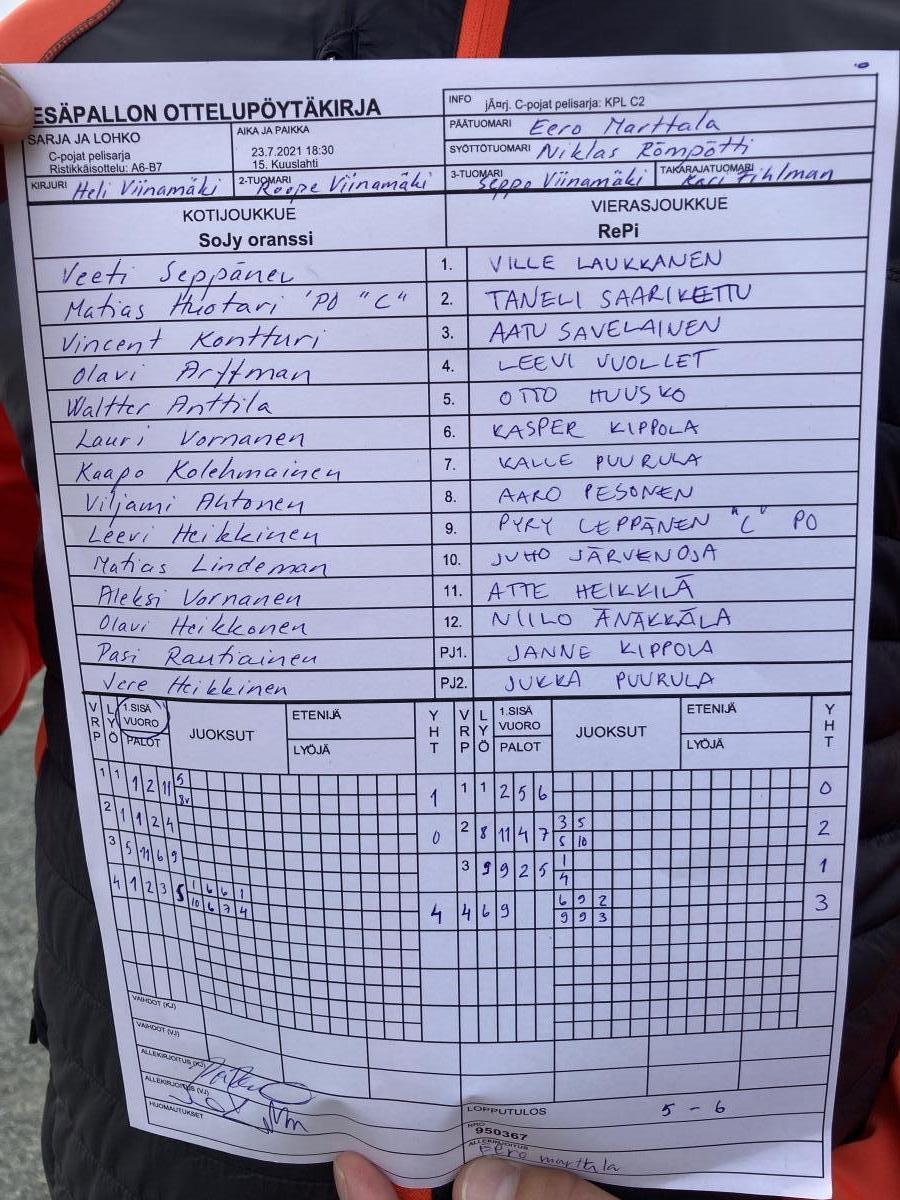 ESÄPALLON OTTELUPÖYTÄKIRJA
SARJA JA LOHKO
C-pojat pelisarja
Ristikkäisottelu: A6-B7
AIKA JA PAIKKA
23.7.2021 18:30
15. Kuuslahti
INFO jÃ¤rj. C-pojat pelisarja: KPL C2
PÄÄTUOMARI Eero Marttala
SYÖTTÖTUOMARI Niklas Römpötti
KIRJURI Heli Viinamäki 2-TUOMARI Roope Viinamäki 3-TUOMARI Seppo Viinamäki TAKARAJATUOMARI Kari Fihlman
KOTIJOUKKUE VIERASJOUKKUE
SoJy oranssi RePi
Veeti Seppänen 1. VILLE LAUKKANEN
Matias Huotari 'PO "C" 2. TANELI SAARIKETTU
Vincent Kontturi 3. AATU SAVELAINEN
Olavi Arffman 4. LEEVI VUOLLET
Waltter Anttila 5. OTTO HUUSKO
Lauri Vornanen 6. KASPER KIPPOLA
Kaapo Kolehmainen 7. KALLE PUURULA
Viljami Ahtonen 8. AARO PESONEN
Leevi Heikkinen 9. PYRY LEPPÄNEN "C" PO
Matias Lindeman 10. JUHO JÄRVENOJA
Aleksi Vornanen 11. ATTE HEIKKILÄ
Olavi Heikkonen 12. NIILO ÄNÄKKÄLÄ
Pasi Rautiainen PJ1. JANNE KIPPOLA
Jere Heikkinen PJ2. JUKKA PUURULA
VRP LYÖ 1.SISÄ VUORO PALOT JUOKSUT ETENIJÄ LYÖJÄ YHT VRP LYÖ 1.SISÄ VUORO PALOT JUOKSUT ETENIJÄ LYÖJÄ YHT
1 1 1 2 11 5 1 1 1 2 5 6 0
8v
2 1 1 2 4 0 2 8 11 4 7 3 5 2
5 10
3 5 11 6 9 3 9 9 2 5 1 1
4
4 1 2 3 5 1 6 6 1 4 4 6 9 6 9 2 3
10 6 7 4 9 9 3
VAIHDOT (KJ)
VAIHDOT (VJ)
ALLEKIRJOITUS (KJ)
ALLEKIRJOITUS (VJ)
HUOMAUTUKSET
LOPPUTULOS 5 - 6
NRO
950367
ALLEKIRJOITUS
Eero marttala